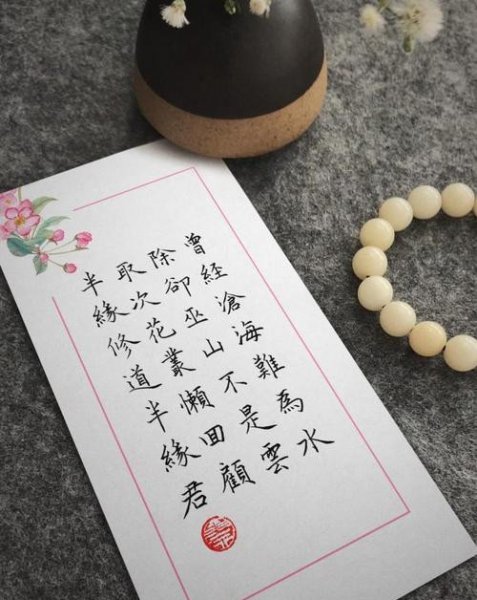 曾經滄海難為水
除卻巫山不是雲
取次花叢懶回顧
半緣修道半緣君